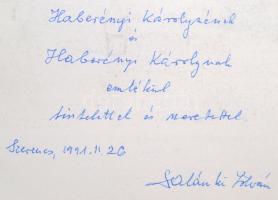 Haberényi Károlynénak
és
Haberényi Károlynak
emlékül
tisztelettel és szeretettel
Szerencs, 1991. 11. 26
Zalánki István